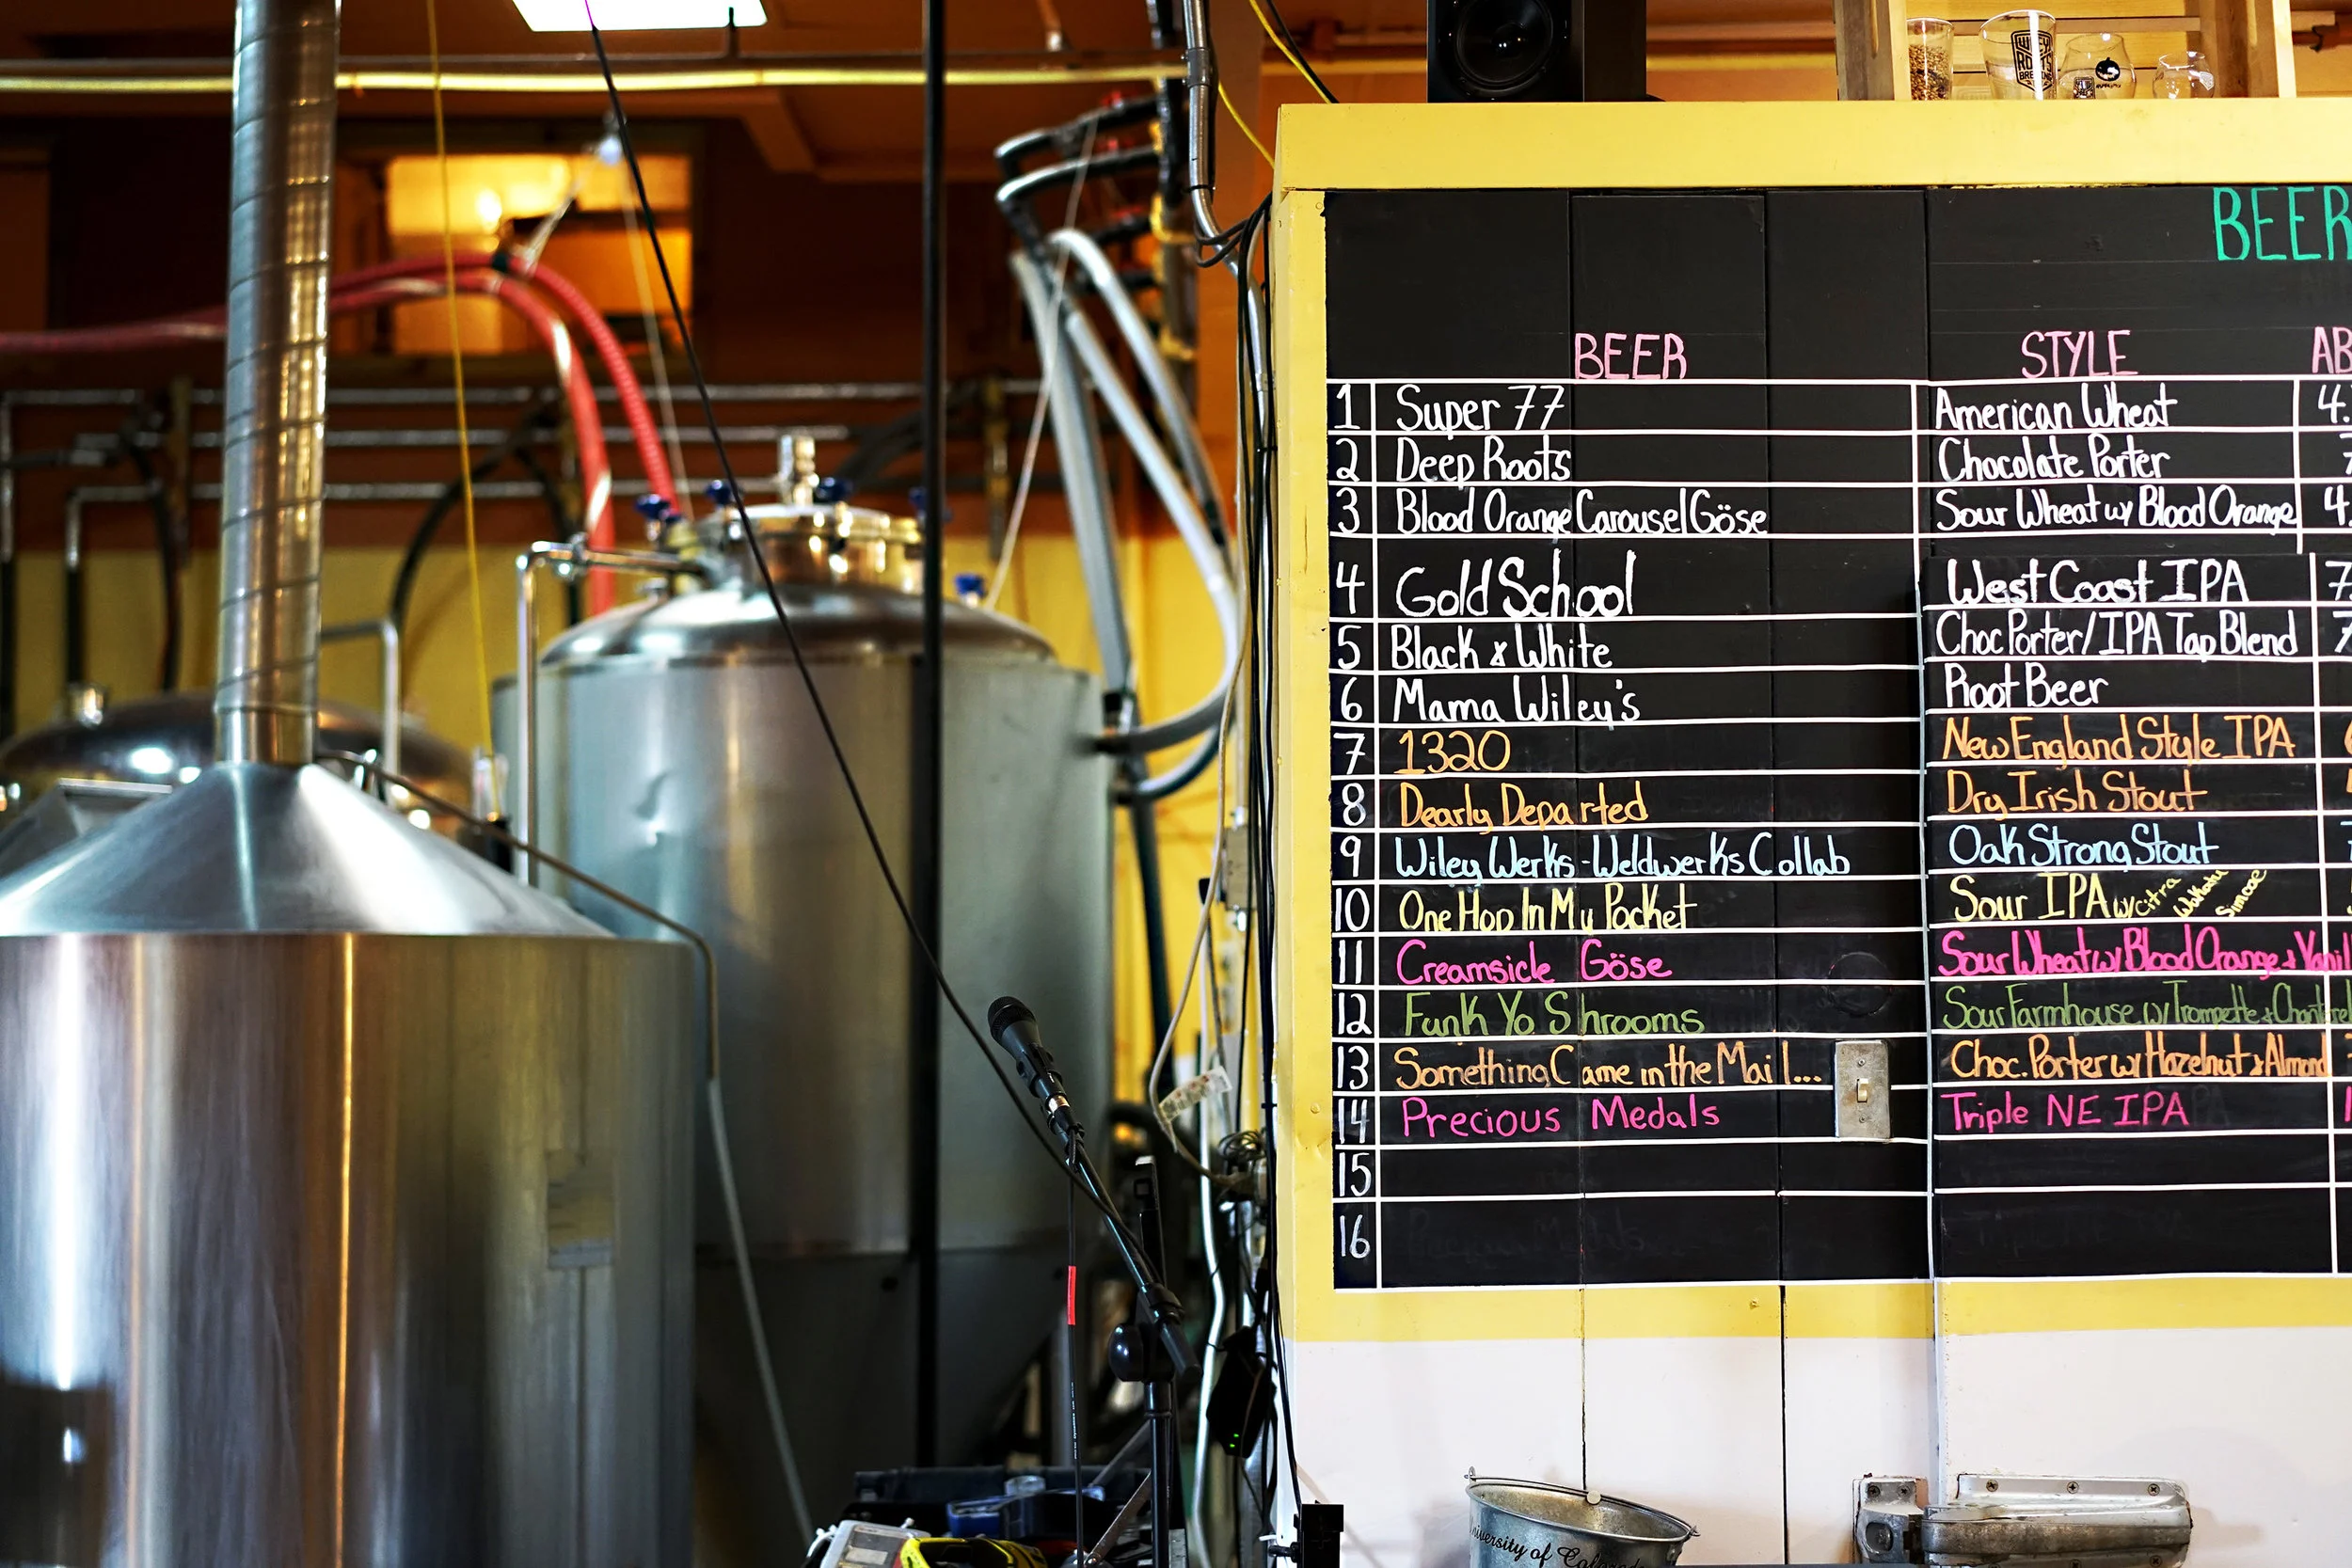 WILEY ROOTS BREWING
BEER
BEER STYLE AB
1 Super 77 American Wheat 4.
2 Deep Roots Chocolate Porter 7
3 Blood Orange Carousel Göse Sour Wheat w/ Blood Orange 4.
4 Gold School West Coast IPA 7
5 Black & White Choc Porter/IPA Tap Blend 7
6 Mama Wiley's Root Beer
7 1320 New England Style IPA 6
8 Dearly Departed Dry Irish Stout
9 Wiley Werks - Weldwerks Collab Oak Strong Stout
10 One Hop In My Pocket Sour IPA w/ citra Wakatu Simcoe
11 Creamsicle Göse Sour Wheat w/ Blood Orange & Vanill
12 Funk Yo Shrooms Sour Farmhouse w/ Trompette & Chanterel
13 Something Came in the Mail... Choc. Porter w/ Hazelnut & Almond
14 Precious Medals Triple NE IPA
15
16
niversity of Colorado